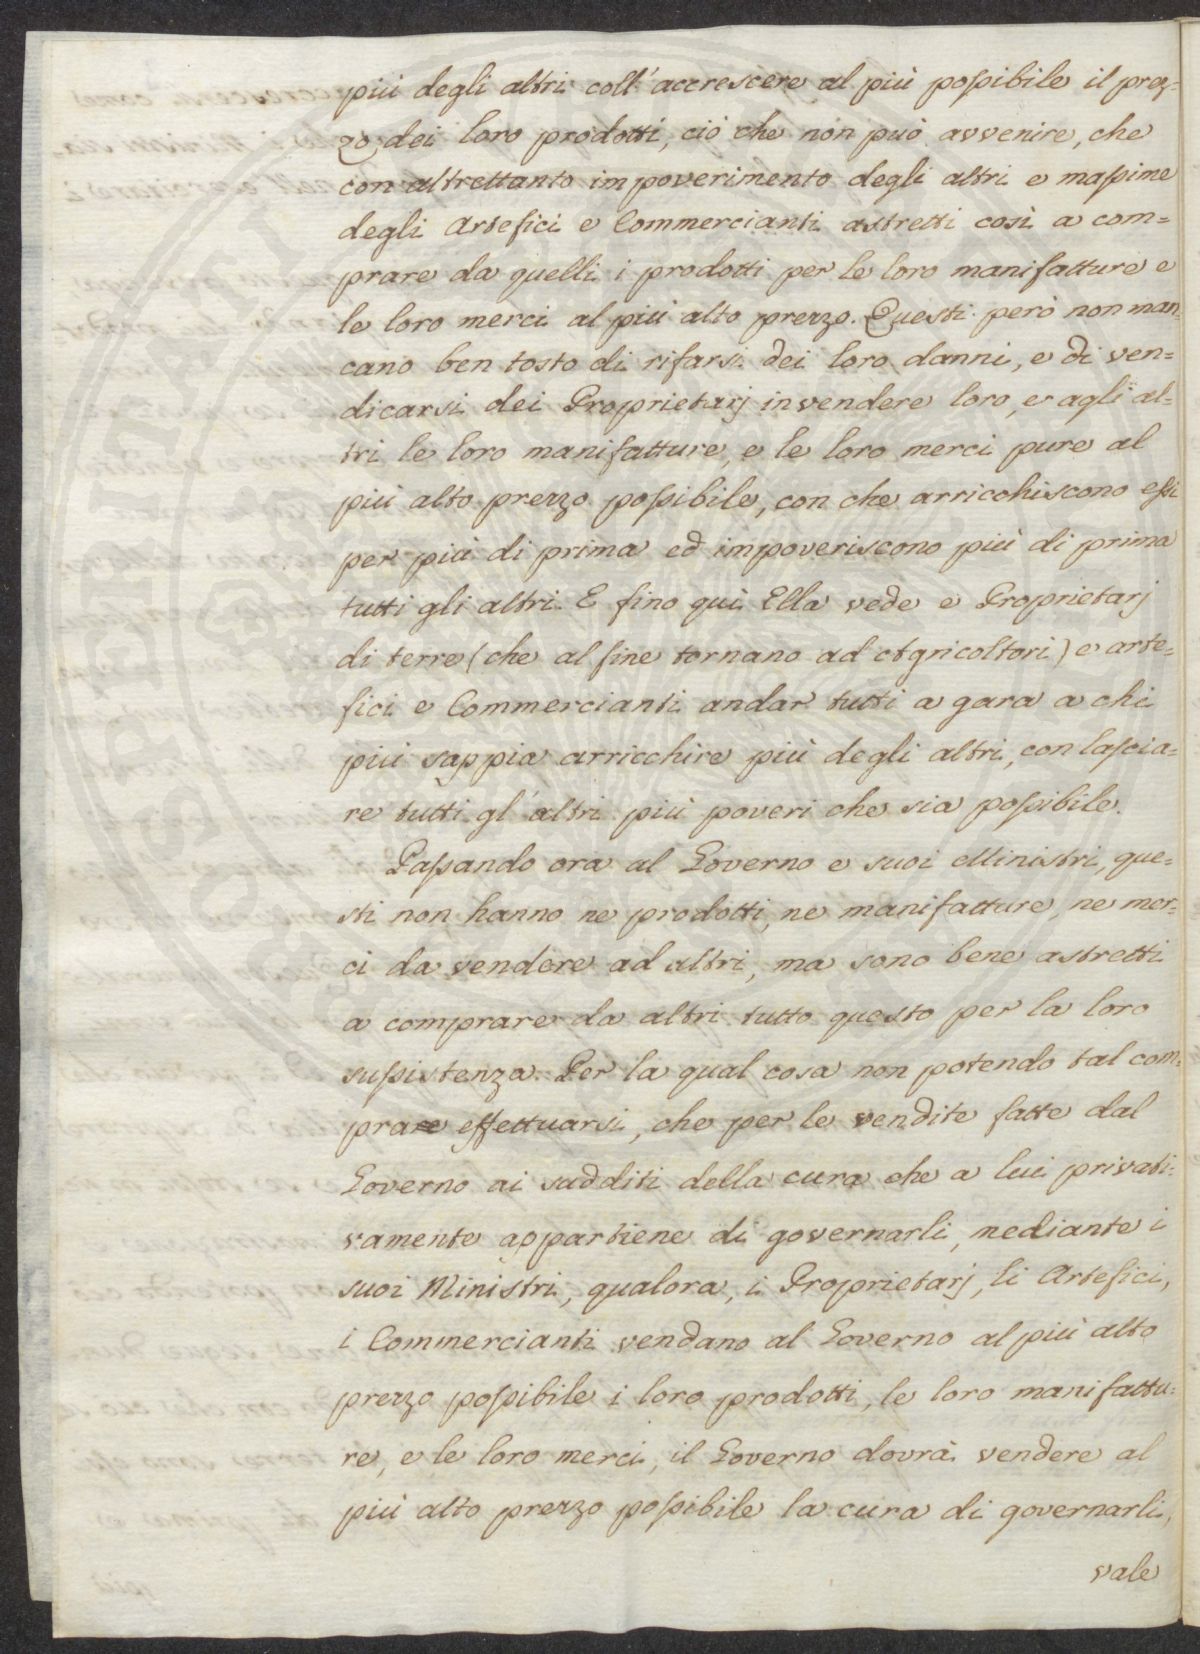 più degli altri coll'accrescere al più poſsibile il prez=
zo dei loro prodotti, ciò che non può avvenire, che
con altrettanto impoverimento degli altri e maſsime
degli Artefici e Commercianti astretti così a com=
prare da quelli i prodotti per le loro manifatture e
le loro merci al più alto prezzo. Questi però non man=
cano ben tosto di rifarsi dei loro danni, e di ven=
dicarsi dei Proprietarj in vendere loro, e agli al=
tri le loro manifatture, e le loro merci pure al
più alto prezzo poſsibile, con che arricchiscono eſsi
per più di prima ed impoveriscono più di prima
tutti gli altri. E fino quì Ella vede e Proprietarj
di terre (che al fine tornano ad Agricoltori) e arte=
fici e Commercianti andar tutti a gara a chi
più sappia arricchire più degli altri, con lascia=
re tutti gl'altri più poveri che sia poſsibile.
Paſsando ora al Governo e suoi Ministri, que=
sti non hanno ne prodotti, ne manifatture, ne mer=
ci da vendere ad altri, ma sono bene astretti
a comprare da altri tutto questo per la loro
suſsistenza. Per la qual cosa non potendo tal com=
prare effettuarsi, che per le vendite fatte dal
Governo ai sudditi della cura che a lui privati=
vamente appartiene di governarli, mediante i
suoi Ministri, qualora, i Proprietarj, li Artefici,
i Commercianti vendano al Governo al più alto
prezzo poſsibile i loro prodotti, le loro manifattu=
re, e le loro merci, il Governo dovrà vendere al
più alto prezzo poſsibile la cura di governarli,
vale